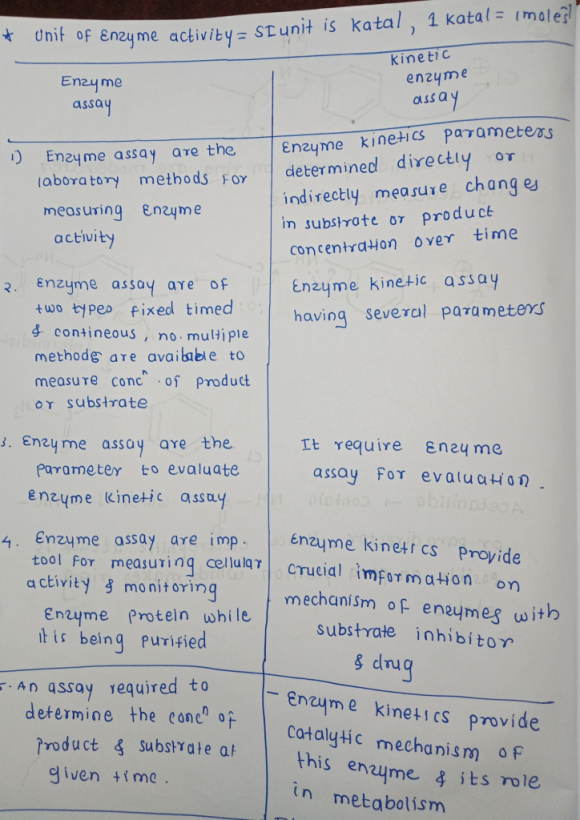 * Unit of Enzyme activity = SI unit is Katal, 1 Katal = 1 mole s⁻¹
Enzyme
assay
Kinetic
enzyme
assay
1) Enzyme assay are the
laboratory methods For
measuring Enzyme
activity
Enzyme kinetics parameters
determined directly or
indirectly measure changes
in substrate or product
concentration over time
2. Enzyme assay are of
two types fixed timed
& contineous, no. multiple
methods are available to
measure concⁿ. of product
or substrate
Enzyme kinetic assay
having several parameters
3. Enzyme assay are the
parameter to evaluate
Enzyme Kinetic assay
It require Enzyme
assay For evaluation.
4. Enzyme assay are imp.
tool For measuring cellular
activity & monitoring
Enzyme protein while
it is being purified
Enzyme kinetics provide
crucial information on
mechanism of enzymes with
substrate inhibitor
& drug
5. An assay required to
determine the concⁿ of
product & substrate at
given time.
- Enzyme kinetics provide
catalytic mechanism of
this enzyme & its role
in metabolism